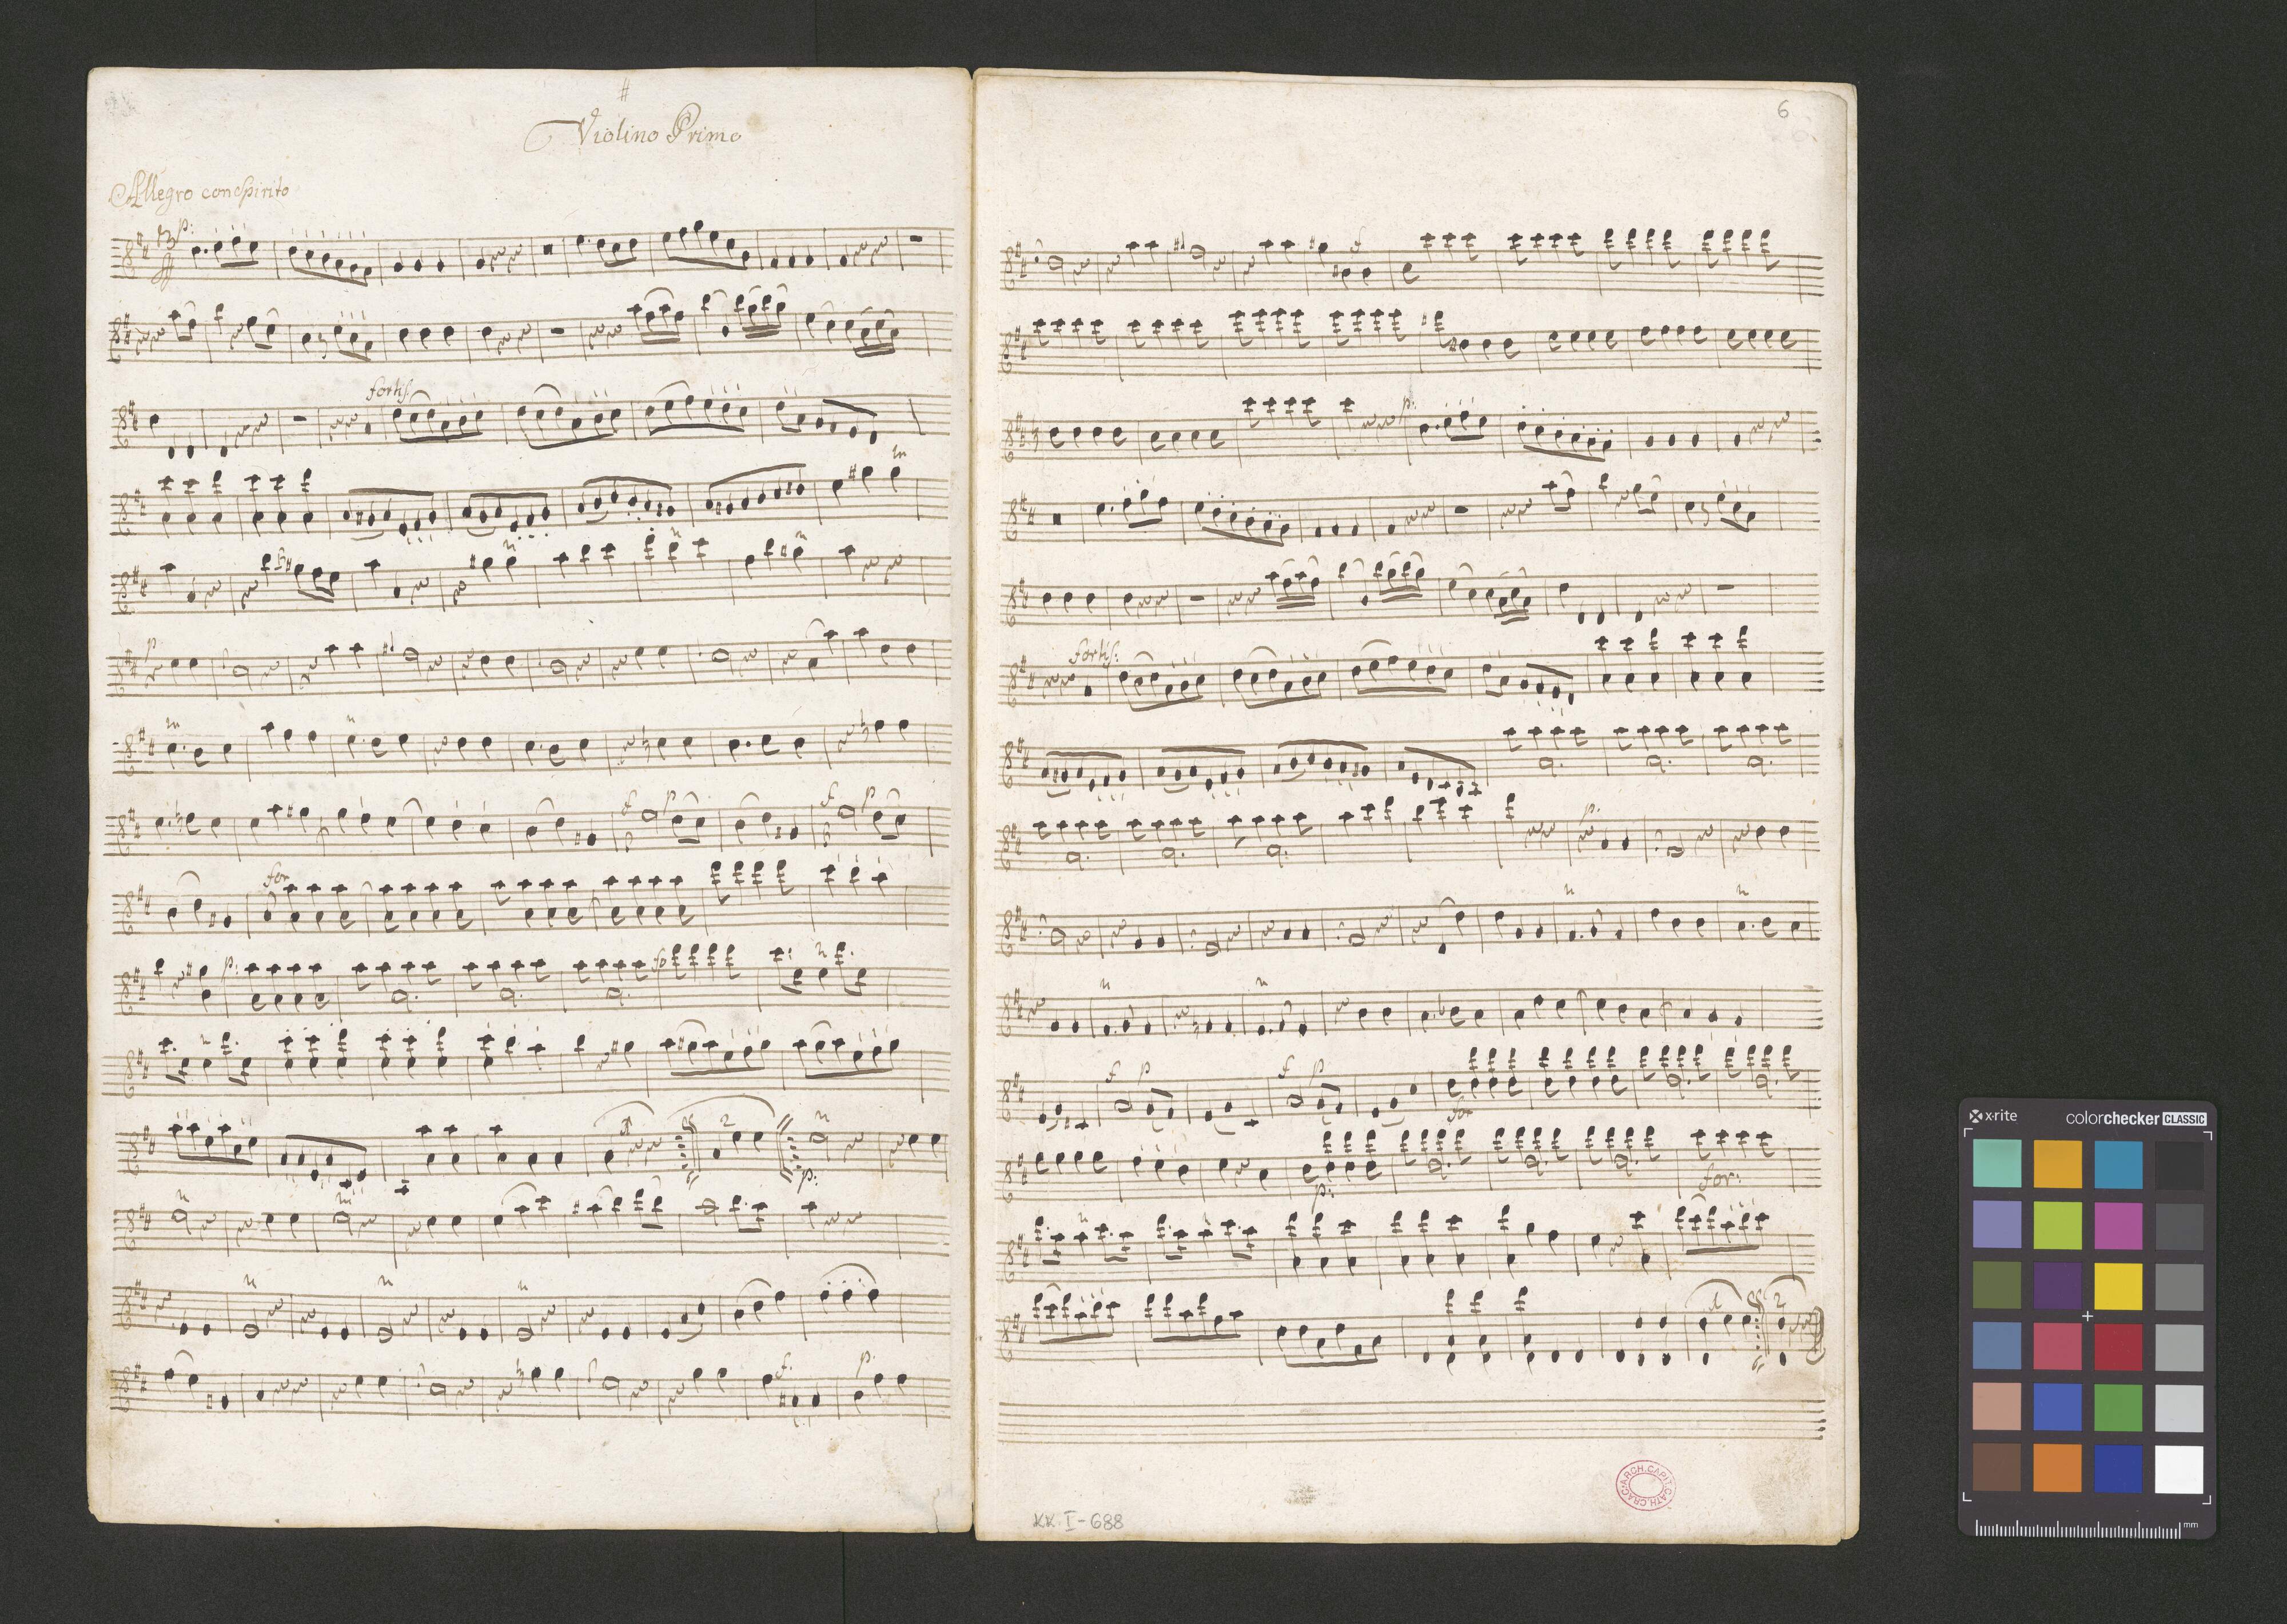 #
Violino Primo
Allegro con Spirito
p:
fortis.
p
f p f p
for
p: fo
2
p:
f. p.
6
f
p:
fortis:
p.
f p f p
for
p:
for:
2
ARCH. CAPIT. CATH. CRAC.
KK. I-688
x-rite colorchecker CLASSIC
mm